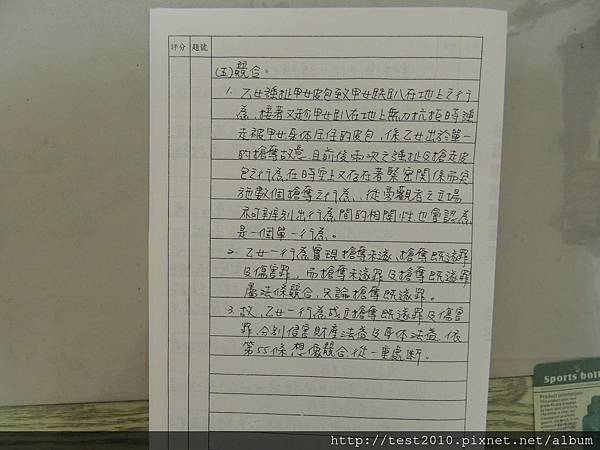 評分 題號
(五)競合。
1. 乙女強扯甲女皮包致甲女跌趴在地上之行
為、接著又趁甲女趴在地上無力抗拒時強
走被甲女身体压住的皮包,係乙女出於單一
的搶奪故意,且前後兩次之強扯及搶走皮
包之行為在時空上又存在著緊密関係而实
施數個搶奪之行為,從旁觀者之立場
可辨別出行為間的相関性也會認為
是一個單一行為。
2. 乙女一行為實現搶奪未遂、搶奪既遂罪
及傷害罪,而搶奪未遂罪及搶奪既遂罪
屬法條競合,只論搶奪既遂罪。
3. 故,乙女一行為成立搶奪既遂罪及傷害
罪,分別侵害財產法益及身体法益,依
第55條想像競合從一重處断。
Sports bott
Product information
http://test2010.pixnet.net/album